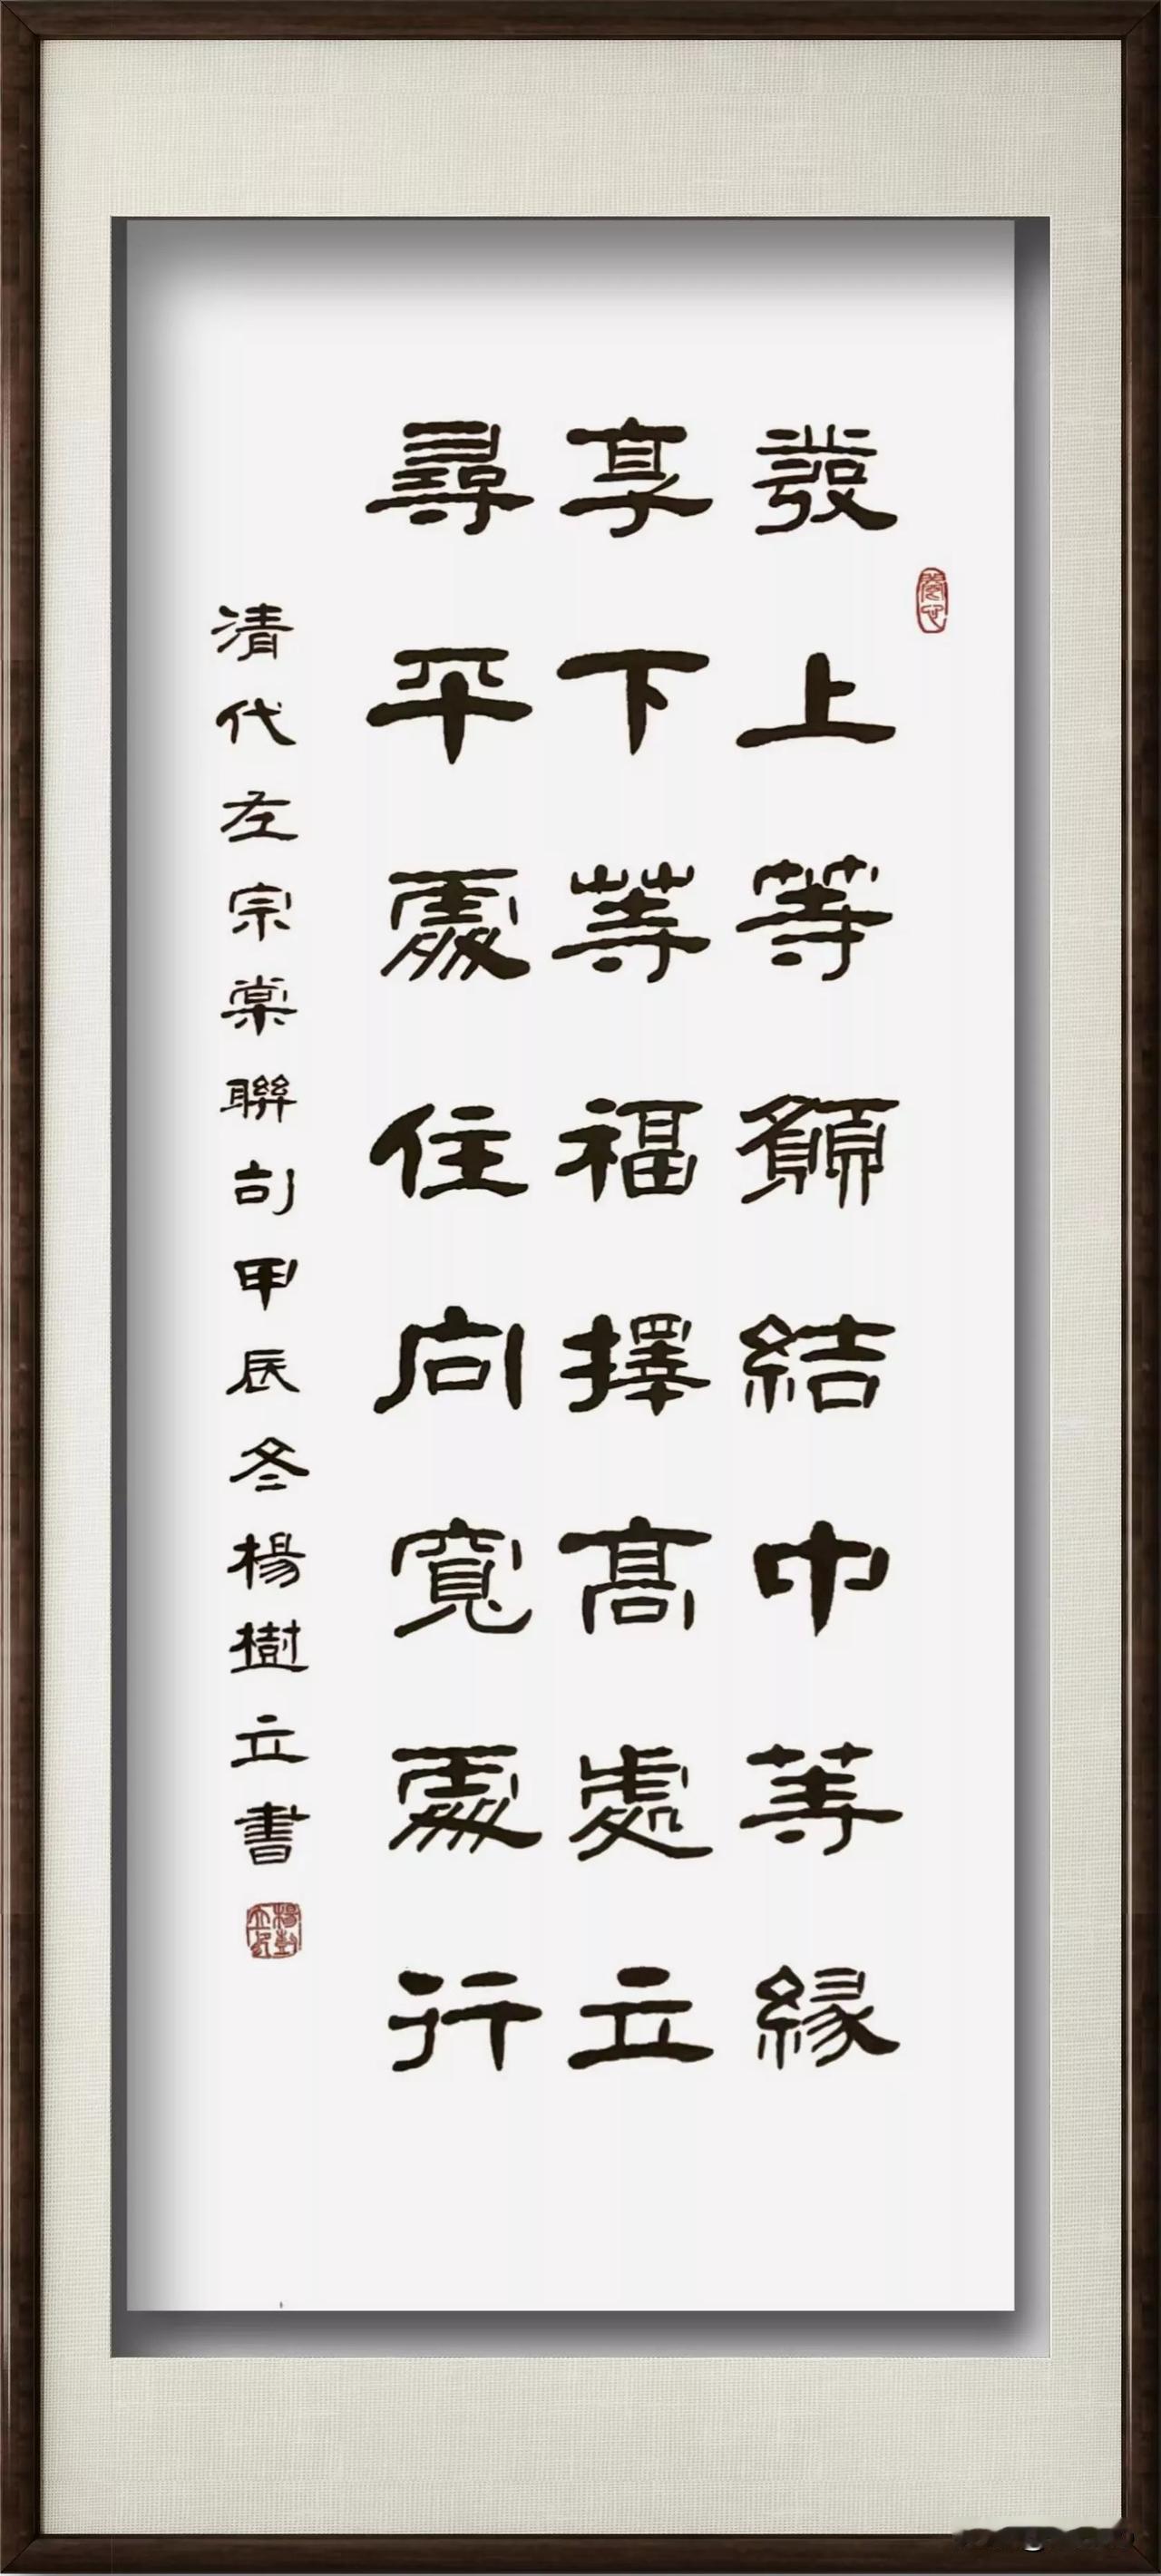 發上等願結中等緣
享下等福擇高處立
尋平處住向寬處行
清代左宗棠聯句甲辰冬楊樹立書